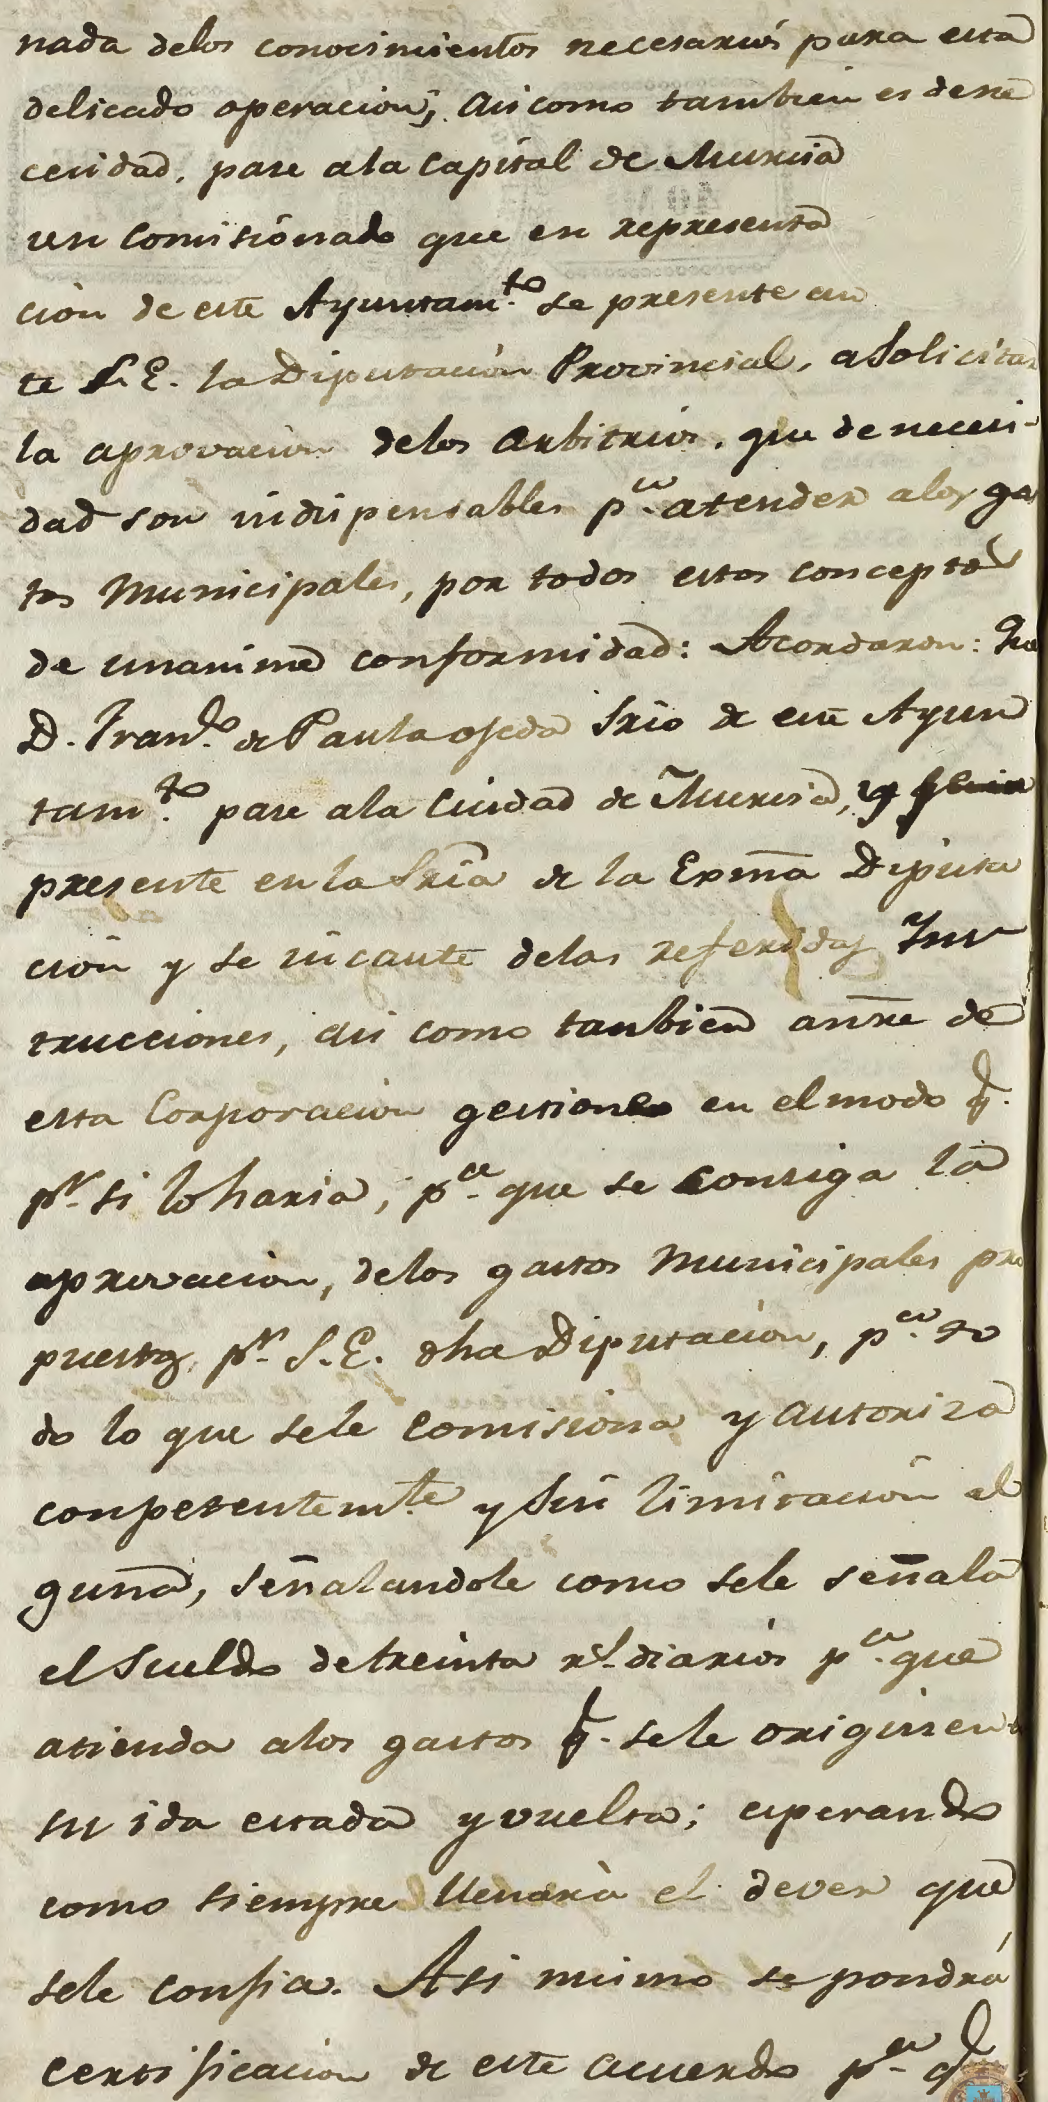 nada delos conocimientos necesarios para esta
delicado operacion; asi como tambien es dene
cesidad, pase ala Capital de Murcia
un Comisionado que en representa
cion de este Ayuntam.to se presente an
te S.E. la Diputacion Provincial, a Solicitar
la aprovacion delos arbitrios, que de necesi-
dad son indispensables p.a atender alos gas
tos Municipales, por todos estos conceptos
de unanime conformidad: Acordaron: Que
D. Fran.co de Paula ojeda Srio de este Ayun
tam.to pase ala Ciudad de Murcia, y
presente en la Sria de la Exma Diputa
cion y se incaute delas referidas Ins
trucciones, asi como tanbien anre de
esta Corporacion gestione en el modo q.
p.r si lo haria, p.a que se consiga la
aprovacion, delos gastos Municipales pro
puestos p.r S.E. dha Diputacion, p.a to
do lo que sele comisiona y autoriza
conpetentem.te y sin limitacion al
guna, señalandole como sele señala
el Sueldo de treinta r.s diarios p.a que
atienda alos gastos q. sele originen
su ida estada y vuelta; esperando
como siempre llenarà el dever que
sele confia. Asi mismo se pondrá
certificacion de este acuerdo p.a q.